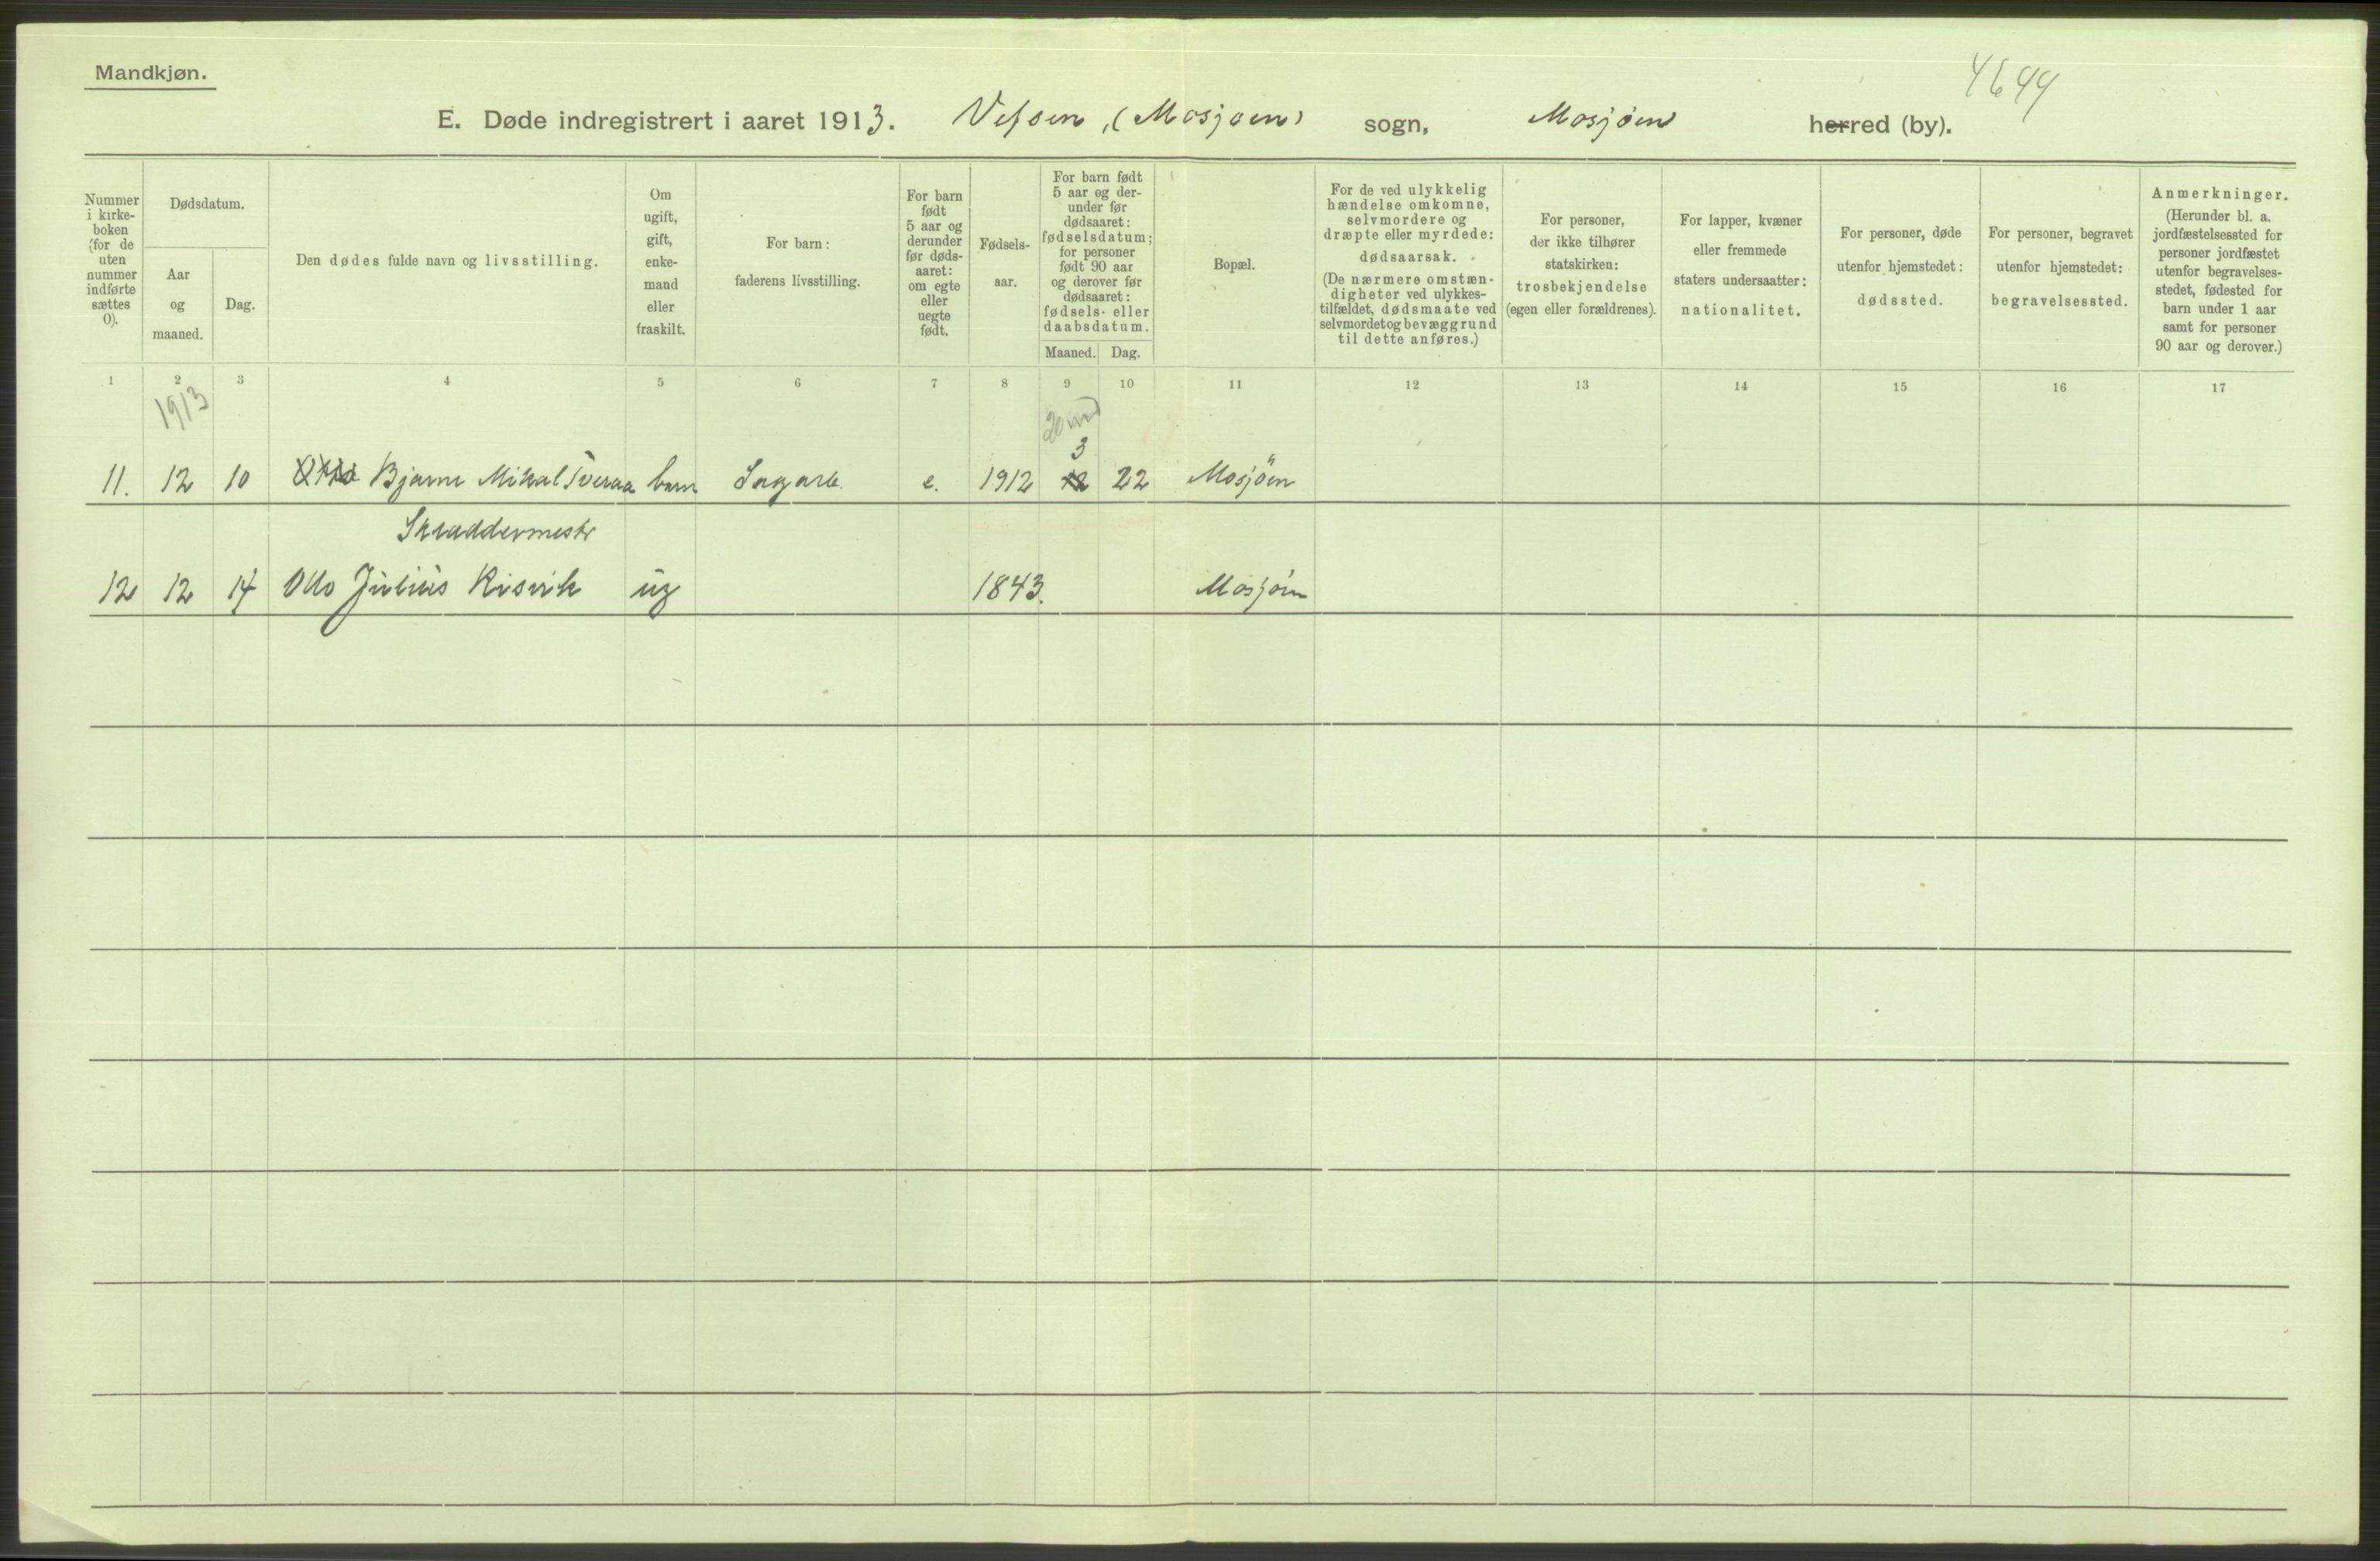 Mandkjøn.
4644
E. Døde indregistrert i aaret 1913. Vefsen, (Mosjøen) sogn, Mosjøen herred (by).
Nummer i kirke- boken (for de uten nummer indførte sættes 0).
Dødsdatum.
Aar og maaned.
Dag.
Den dødes fulde navn og livsstilling.
Om ugift, gift, enke- mand eller fraskilt.
For barn: faderens livsstilling.
For barn født 5 aar og derunder før døds- aaret: om egte eller uegte født.
Fødsels- aar.
For barn født 5 aar og der- under før dødsaaret: fødselsdatum; for personer født 90 aar og derover før dødsaaret: fødsels- eller daabsdatum.
Maaned. Dag.
Bopæl.
For de ved ulykkelig hændelse omkomne, selvmordere og dræpte eller myrdede: dødsaarsak. (De nærmere omstæn- digheter ved ulykkes- tilfældet, dødsmaate ved selvmordet og bevæggrund til dette anføres.)
For personer, der ikke tilhører statskirken: trosbekjendelse (egen eller forældrenes).
For lapper, kvæner eller fremmede staters undersaatter: nationalitet.
For personer, døde utenfor hjemstedet: dødssted.
For personer, begravet utenfor hjemstedet: begravelsessted.
Anmerkninger. (Herunder bl. a. jordfæstelsessted for personer jordfæstet utenfor begravelses- stedet, fødested for barn under 1 aar samt for personer 90 aar og derover.)
1 2 3 4 5 6 7 8 9 10 11 12 13 14 15 16 17
1913
20 m
3
11. 12 10 Bjarne Mikal Tveraa barn Sagarb. e. 1912 12 22 Mosjöen
Skræddermestr
12 12 14 Otto Julius Risvik ug 1843. Mosjøen